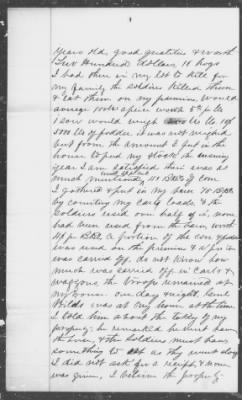 Years old, good qualities & worth
Two Hundred Dollars 18 hogs
I had them in my lot to kill for
my family the soldiers killed them
& eat them on my premises. Would
average 100 lbs apiece worth 5¢ p lb
1 Sow would weigh lbs
5000 lbs of fodder. it was not weighed
but from the amount I put in the
house to feed my stock the ensuing
year I am satisfied there was as
much mentioned, 100 Bbls of Corn
I gathered & put in my barn 70 Bbls
by counting my cart loads & the
Soldiers used one half of it, none
had been used from the barn worth
p Bbl, a portion of the corn & fodder
was used on the premises & a portion
was carried off. do not know how
much was carried off in Carts &
waggons. the troops remained at
my house. one day & night. Genl
was at my house at the time
I told him about the taking of my
property; he remarked he must have
the oxen, & the soldiers must have
something to eat as they went along
I did not ask for a receipt & none
was given, I believe the property